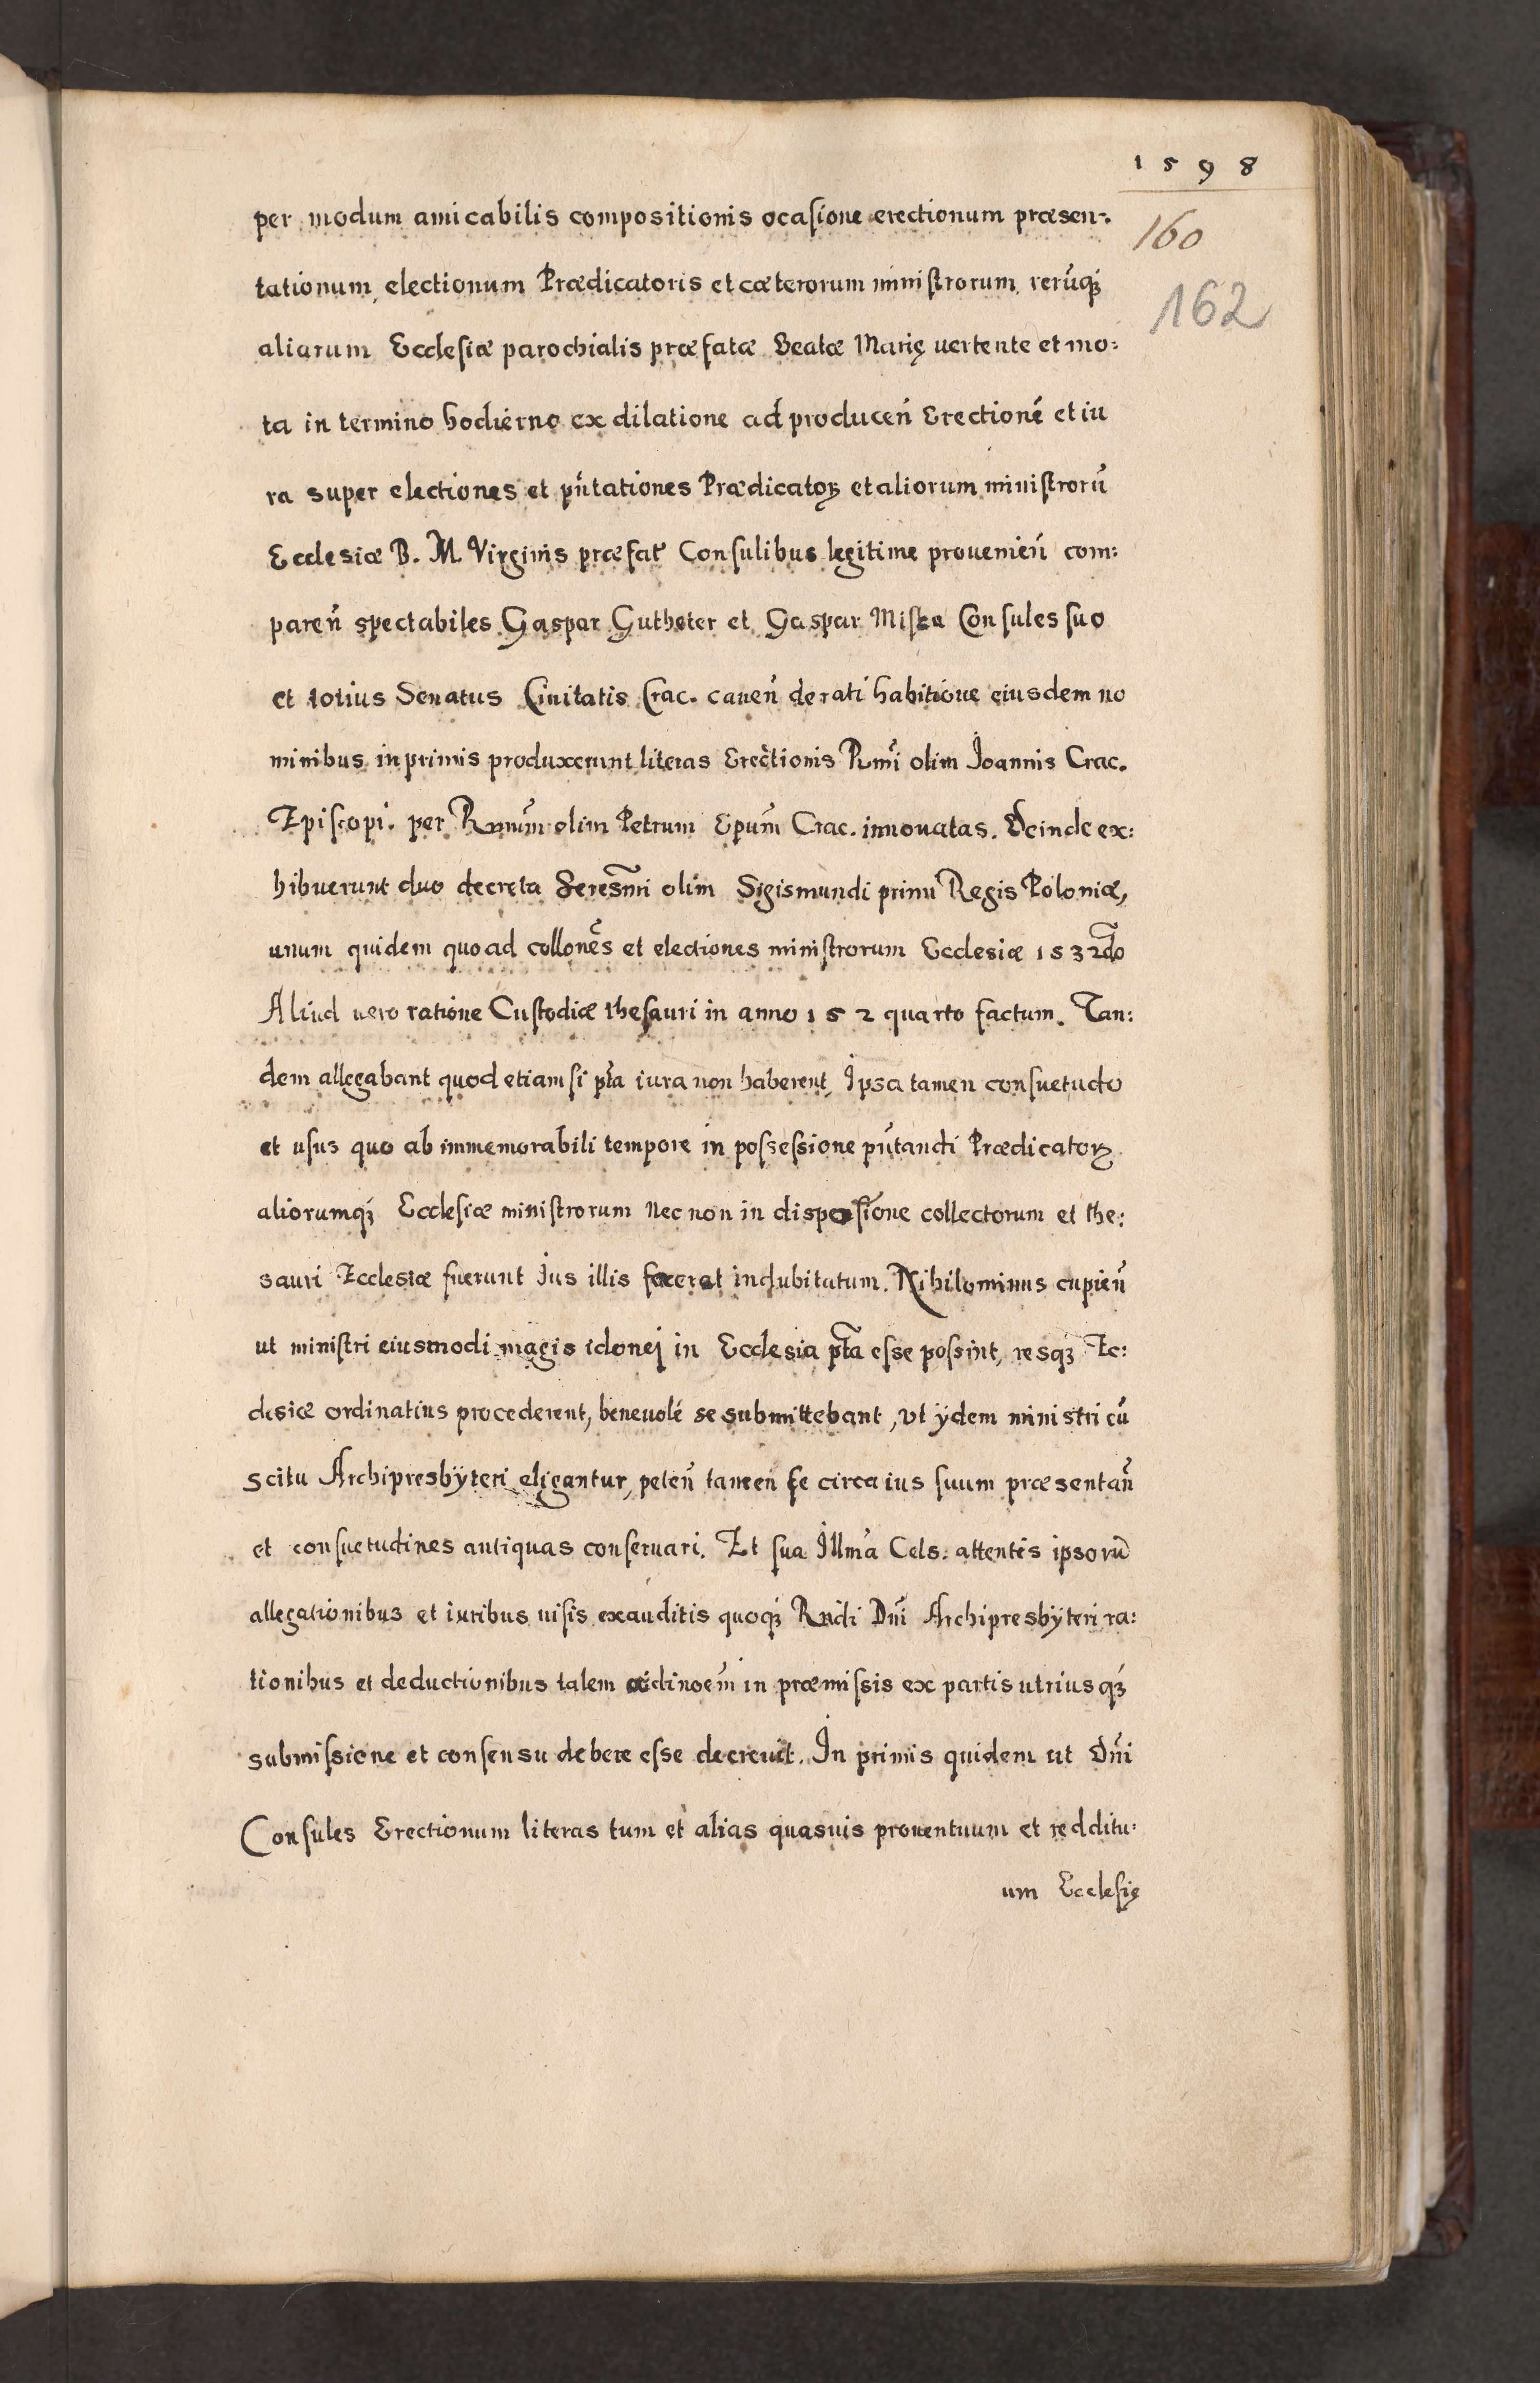 1598
160
162
per modum amicabilis compositionis ocasione erectionum præsen:
tationum, electionum Prædicatoris et cæterorum ministrorum, rerūqꝫ
aliarum Ecclesiæ parochialis præfatæ Beatæ Marię vertente et mo:
ta in termino hodierno ex dilatione ad producen̄ Erectionē et iu
ra super electiones et pn̄tationes Prædicatoꝝ et aliorum ministrorū
Ecclesiæ B. M. Virginis præfat̄ Consulibus legitime prouenien̄ com:
paren̄ spectabiles Gaspar Gutheter et Gaspar Miska Consules suo
et totius Senatus Ciuitatis Crac. cauen̄ de rati habitione eiusdem no
minibus inprimis produxerunt literas Erectionis Rmi̅ olim Joannis Crac.
Episcopi. per Rmūm olim Petrum Epum̄ Crac. innouatas. Deinde ex:
hibuerunt duo decreta Seresm̄i olim Sigismundi primi Regis Poloniæ,
unum quidem quoad collonēs et electiones ministrorum Ecclesiæ 1532do
Aliud uero ratione Custodiæ thesauri in anno 152 quarto factum. Tan:
dem allegabant quod etiam si pt̄a iura non haberent, Ipsa tamen consuetudo
et usus quo ab immemorabili tempore in possessione pn̄tandi Prædicatoꝝ
aliorumqꝫ Ecclesiæ ministrorum nec non in dispositione collectorum et the:
sauri Ecclesiæ fuerunt Ius illis facerat indubitatum. Nihilominus cupien̄
ut ministri eiusmodi magis idonej in Ecclesia pt̄a esse possint, resqꝫ Ec:
clesiæ ordinatius procederent, beneuolé se submittebant, vt ÿdem ministri cū
scitu Archipresbÿteri eligantur, peten̄ tamen se circa ius suum præsentan̄
et consuetudines antiquas conseruari. Et sua Illm̄a Cels: attentis ipsorū
allegationibus et iuribus uisis exauditis quoqꝫ Rndi Dn̄i Archipresbÿteri ra:
tionibus et deductionibus talem ordinoēm in præmissis ex partis utriusqꝫ
submissione et consensu debere esse decreuit. In primis quidem ut Dn̄i
Consules Erectionum literas tum et alias quasuis prouentuum et redditu:
um Ecclesię